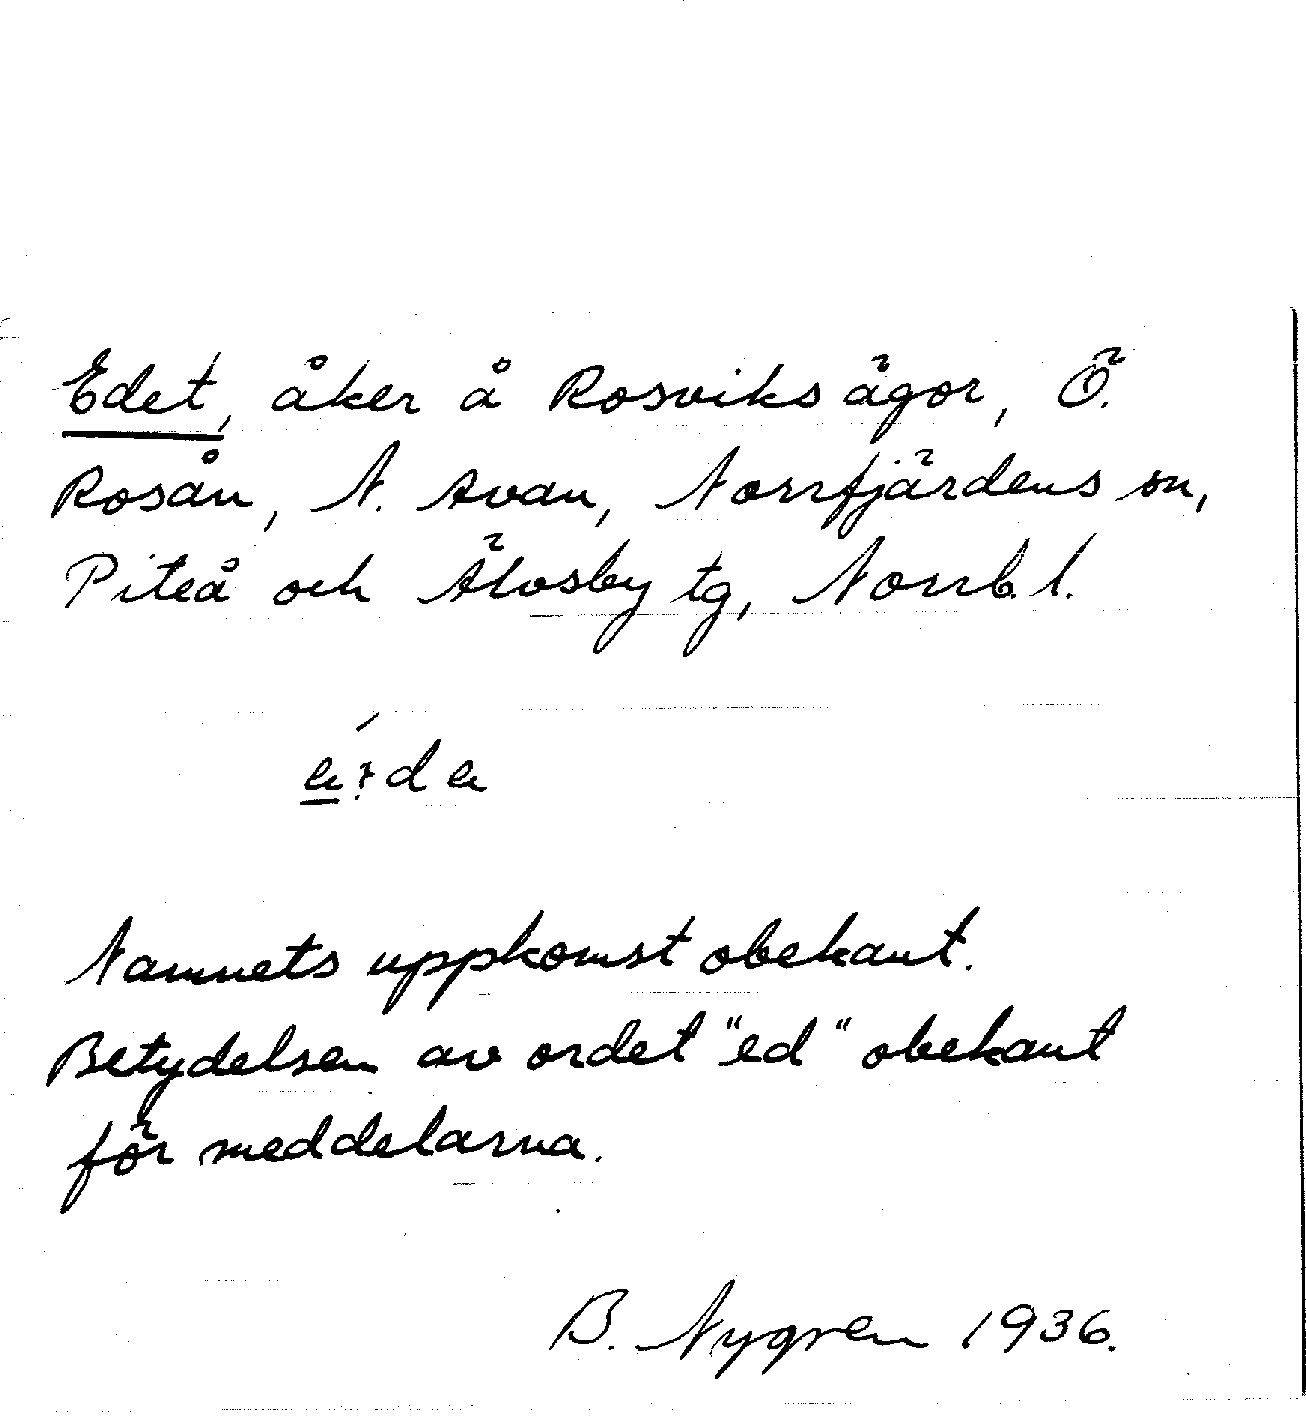 Edet, åker å Rosviks ägor, Ö.
Rosån, N. Avan, Norrfjärdens sn,
Piteå och Älvsby tg, Norrb. l.
Namnets uppkomst obekant.
Betydelsen av ordet "ed" obekant
för meddelarna.
B. Nygren 1936.